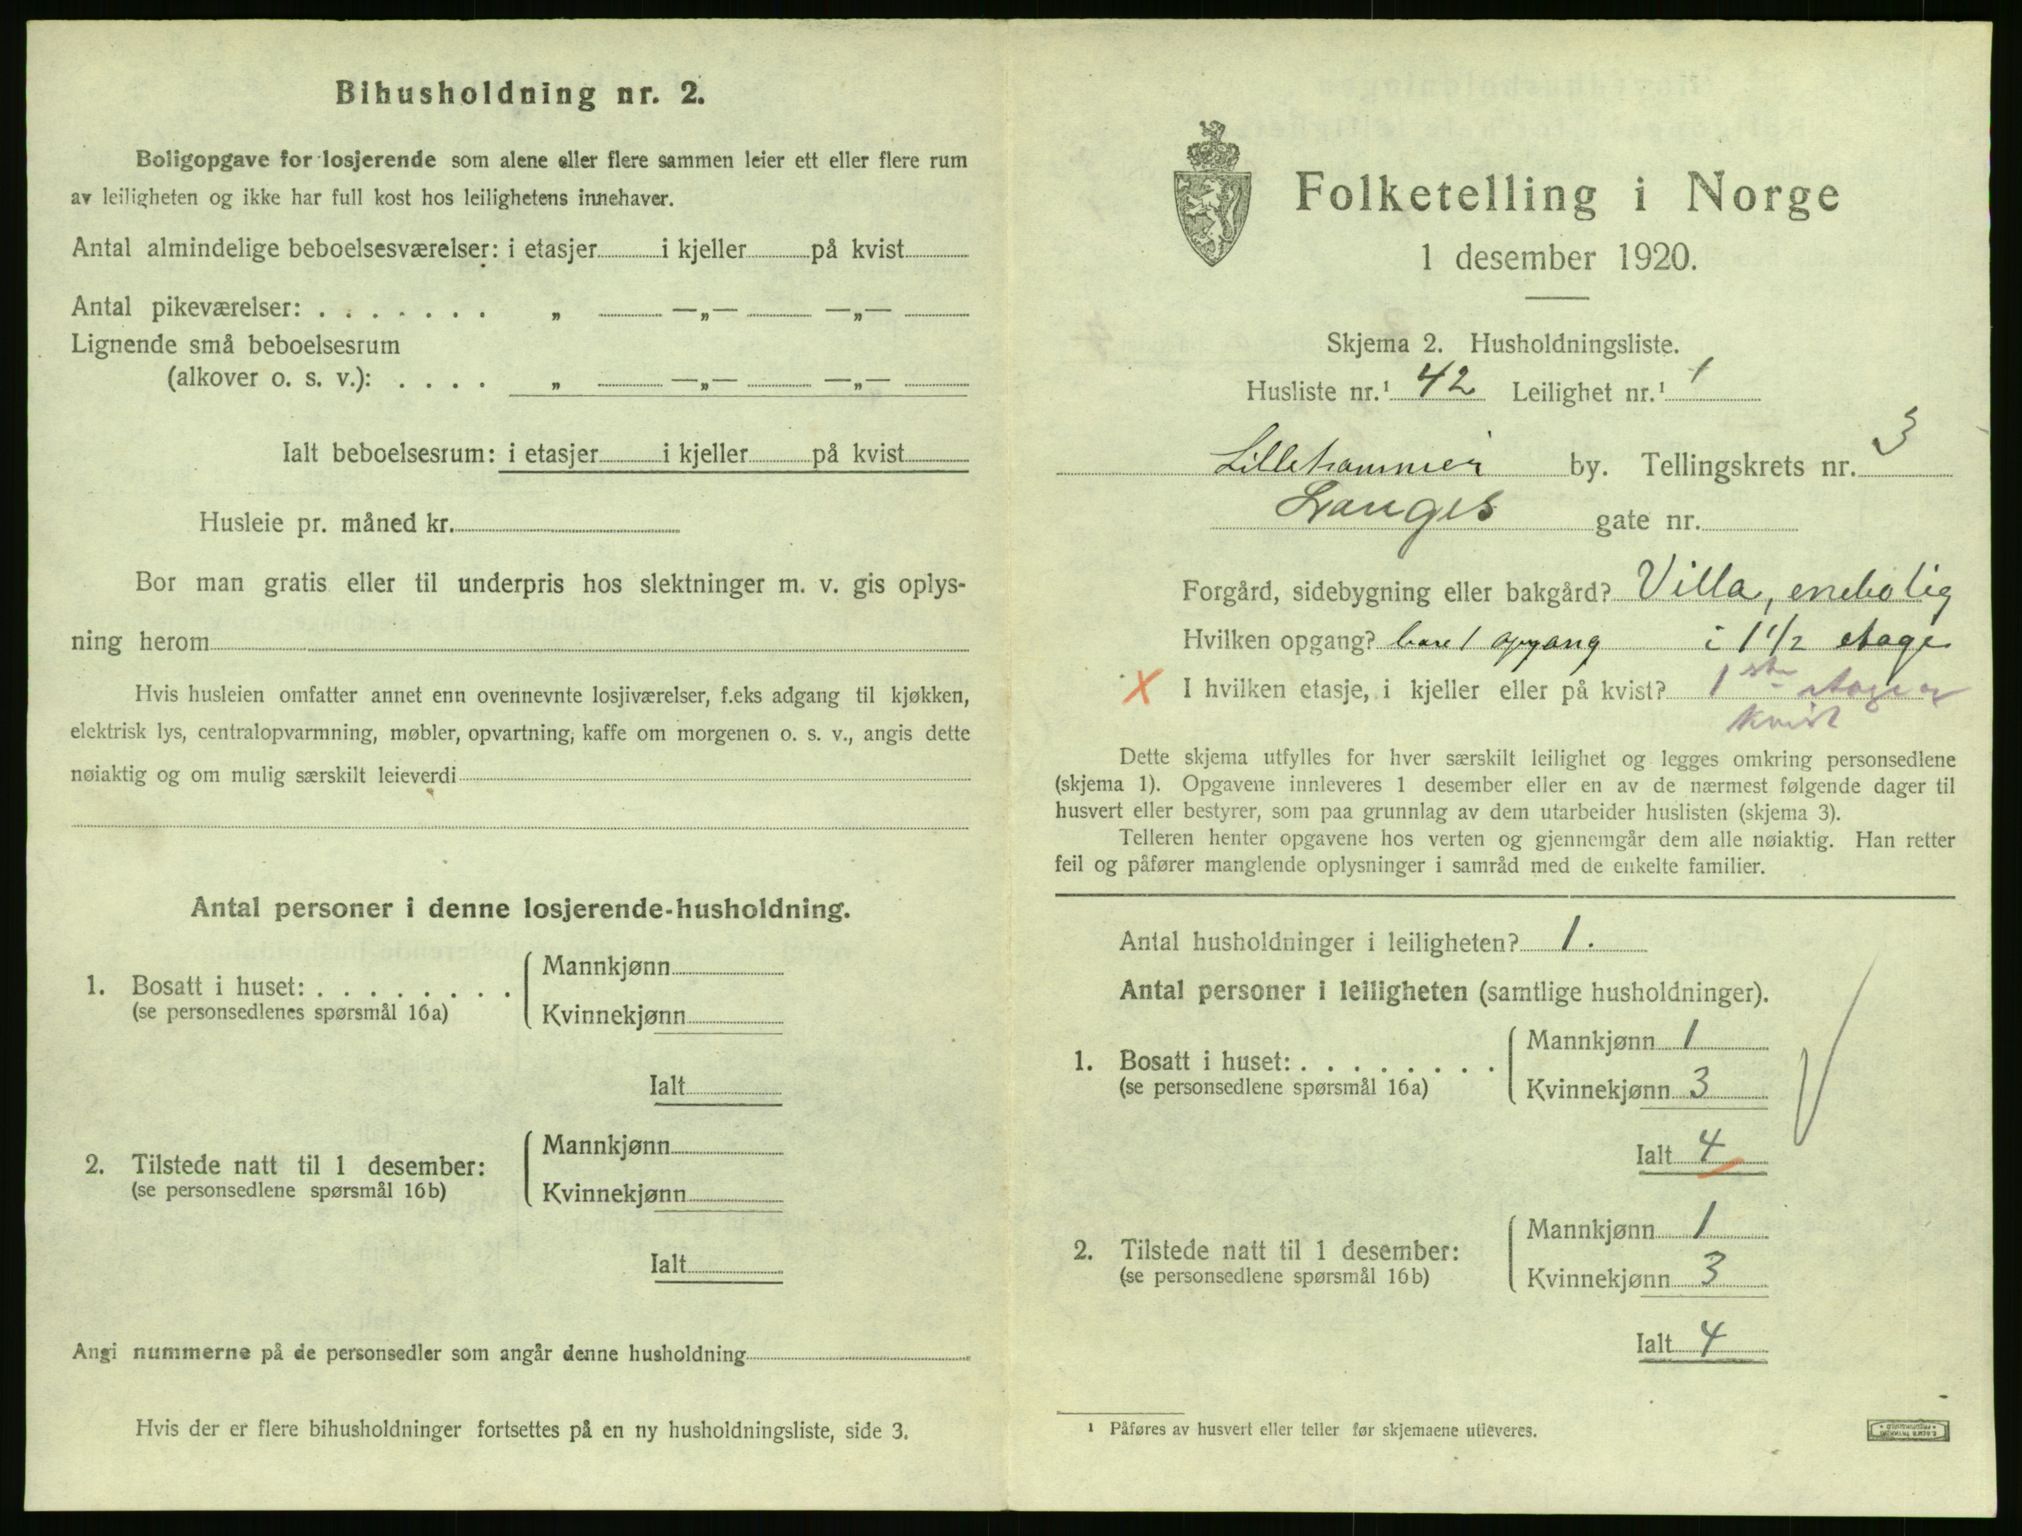 Bihusholdning nr. 2.
Boligopgave for losjerende som alene eller flere sammen leier ett eller flere rum
av leiligheten og ikke har full kost hos leilighetens innehaver.
Antal almindelige beboelsesværelser: i etasjer i kjeller på kvist
Antal pikeværelser: . . . . . . . „ —„— —„—
Lignende små beboelsesrum
(alkover o. s. v.): . . . . „ —„— —„—
Ialt beboelsesrum: i etasjer i kjeller på kvist
Husleie pr. måned kr.
Bor man gratis eller til underpris hos slektninger m. v. gis oplys-
ning herom
Hvis husleien omfatter annet enn ovennevnte losjiværelser, f.eks adgang til kjøkken,
elektrisk lys, centralopvarmning, møbler, opvartning, kaffe om morgenen o. s. v., angis dette
nøiaktig og om mulig særskilt leieverdi
Antal personer i denne losjerende-husholdning.
1. Bosatt i huset: . . . . . . . .
(se personsedlenes spørsmål 16a)
Mannkjønn
Kvinnekjønn
Ialt
2. Tilstede natt til 1 desember:
(se personsedlene spørsmål 16b)
Mannkjønn
Kvinnekjønn
Ialt
Angi nummerne på de personsedler som angår denne husholdning
Hvis der er flere bihusholdninger fortsettes på en ny husholdningsliste, side 3.
Folketelling i Norge
1 desember 1920.
Skjema 2. Husholdningsliste.
Husliste nr.¹ 42 Leilighet nr.¹ 1
Lillehammer by. Tellingskrets nr. 3
Langes gate nr.
Forgård, sidebygning eller bakgård? Villa, enebolig
Hvilken opgang? bare 1 opgang i 1 1/2 etage
X I hvilken etasje, i kjeller eller på kvist? 1ste etage og
kvist
Dette skjema utfylles for hver særskilt leilighet og legges omkring personsedlene
(skjema 1). Opgavene innleveres 1 desember eller en av de nærmest følgende dager til
husvert eller bestyrer, som paa grunnlag av dem utarbeider huslisten (skjema 3).
Telleren henter opgavene hos verten og gjennemgår dem alle nøiaktig. Han retter
feil og påfører manglende oplysninger i samråd med de enkelte familier.
Antal husholdninger i leiligheten? 1.
Antal personer i leiligheten (samtlige husholdninger).
1. Bosatt i huset: . . . . . . . .
(se personsedlene spørsmål 16a)
Mannkjønn 1
Kvinnekjønn 3
Ialt 4
2. Tilstede natt til 1 desember:
(se personsedlene spørsmål 16b)
Mannkjønn 1
Kvinnekjønn 3
Ialt 4
¹ Påføres av husvert eller teller før skjemaene utleveres.